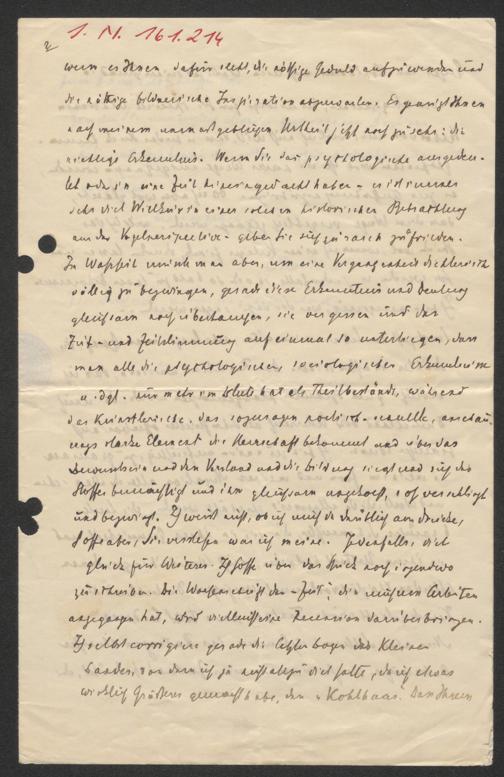 1. N. 161.214
2
wenn es Ihnen dafür steht, die nöthige Geduld aufzuwenden und
die nöthige bildnerische Inspiration abzuwarten. Es genügt Ihnen
nach meinem unmaßgeblichen Urtheil jetzt noch zu sehr: die
richtige Erkenntnis. Wenn Sie das psychologische ausgedeu-
tet oder in eine Zeit hineingedacht haben – es ist immer
sehr viel Willkür in einer solchen historischen Betrachtung
aus der Vogelperspective – geben Sie sich zu rasch zufrieden.
In Wahrheit müsste man aber, um eine Vergangenheit dichterisch
völlig zu bezwingen, gerade diese Erkenntnis und Deutung
gleichsam noch überhängen, sie vergessen und das
Zeit- und Zeitstimmung auf einmal so unterliegen, dass
man alle die psychologischen, sociologischen Erkenntnisse
u. dgl. nur mehr im Blute hat als Theilbestände, während
das Künstlerische, das sozusagen poetisch-sensuelle, anschau-
ungsstarke Element die Herrschaft bekommt und über das
Bewusstsein und den Verstand und die Bildung siegt und sich des
Stoffes bemächtigt und ihn gleichsam
und bezwingt. Ich weiß nicht, ob ich mich da deutlich ausdrücke,
hoffe aber, Sie verstehen was ich meine. Jedenfalls viel
Glück für Weiteres. Ich hoffe über das Stück noch irgendwo
zu schreiben. Die Wochenschrift die „Zeit“, die mich um Arbeiten
angegangen hat, wird vielleicht eine Recension darüber bringen.
Ich selbst corrigiere gerade die letzten Bogen des kleinen
Bandes, von dem ich ja nicht allzu viel halte, da ich etwas
wirklich Größeres gemacht habe, den „Kohlhaas“. Dass Ihnen